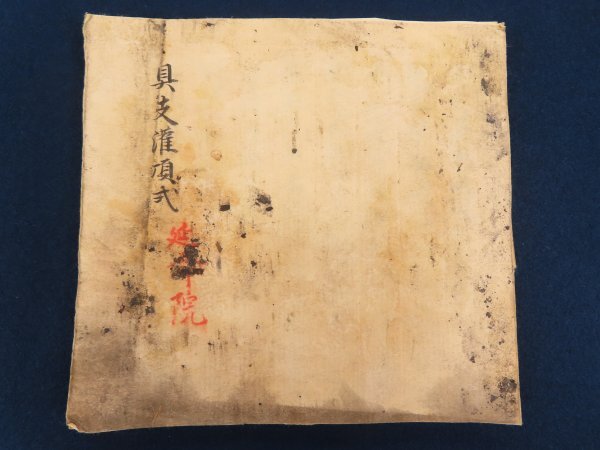 具支灌頂式
延命院